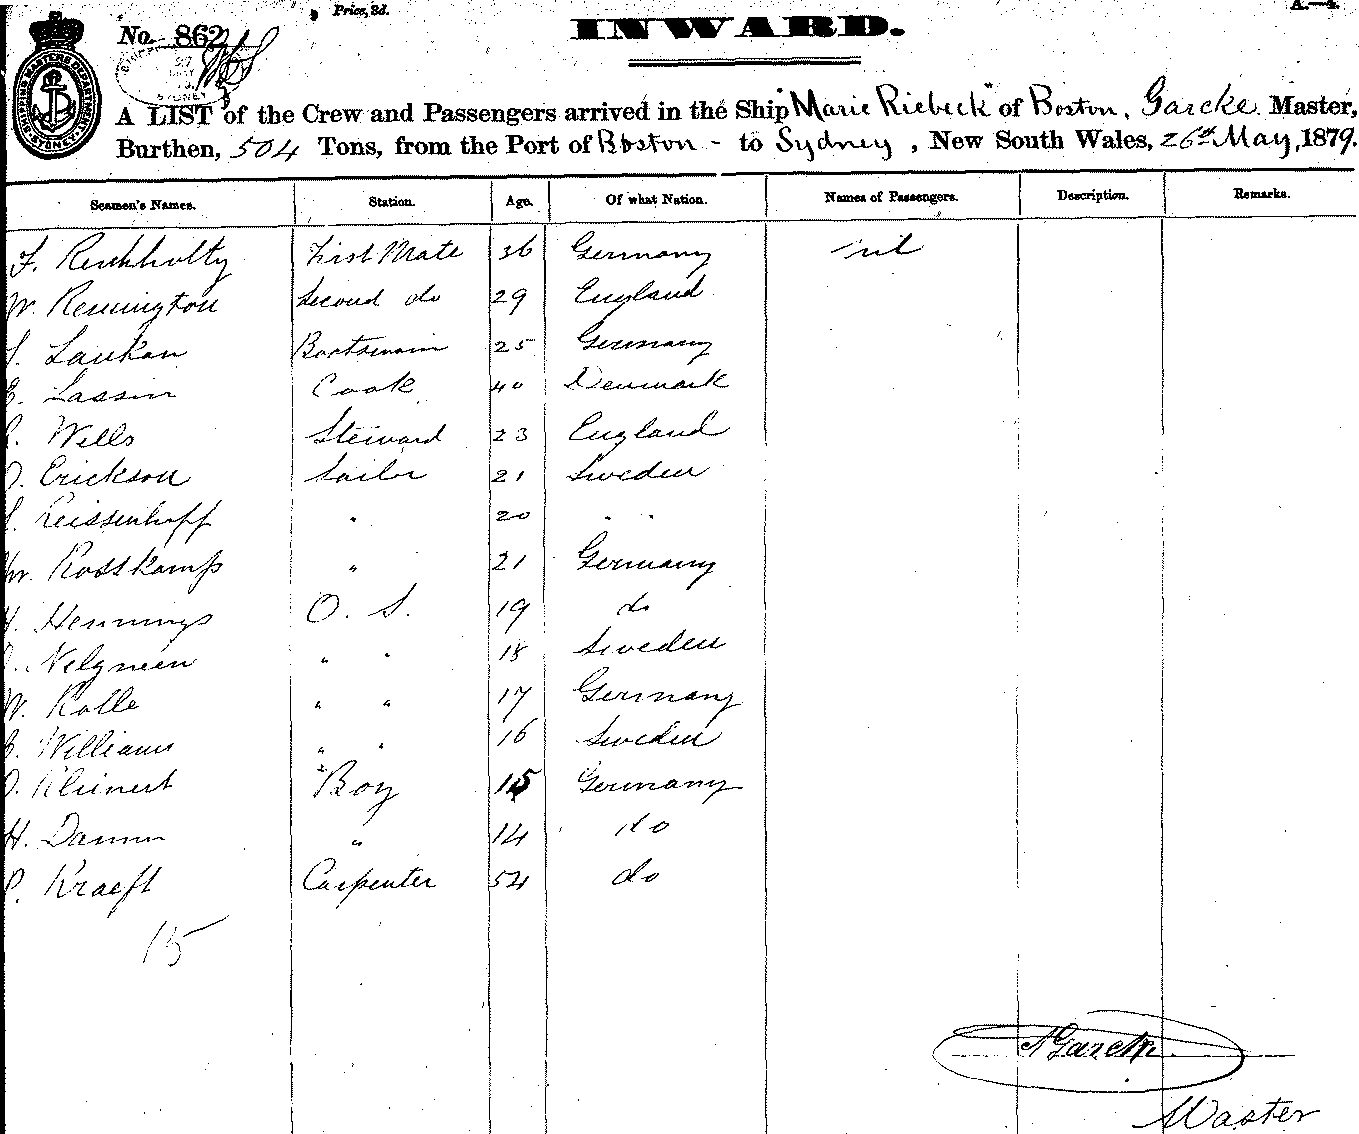 Price, 3d.
A.—4.
No. 862
INWARD.
SHIPPING MASTERS DEPARTMENT SYDNEY
27 MAY SYDNEY
A LIST of the Crew and Passengers arrived in the Ship "Marie Riebeck" of Boston, Garcke Master,
Burthen, 504 Tons, from the Port of Boston - to Sydney, New South Wales, 26th May, 1879.
Seamen's Names. Station. Age. Of what Nation. Names of Passengers. Description. Remarks.
F. First Mate 36 Germany nil
W. Remington Second do 29 England
Laukan Boatswain 25 Germany
E. Lassen Cook 40 Denmark
Wells Steward 23 England
O. Erickson Sailor 21 Sweden
Reissenhoff " 20 " "
Wm. Rosskamp " 21 Germany
H. Hennings O. S. 19 do
" " 18 Sweden
W. Kolle " " 17 Germany
Williams " " 16 Sweden
O. Kleinert Boy 15 Germany
H. Damm " 14 do
P. Kraeft Carpenter 54 do
15
A Garcke
Master